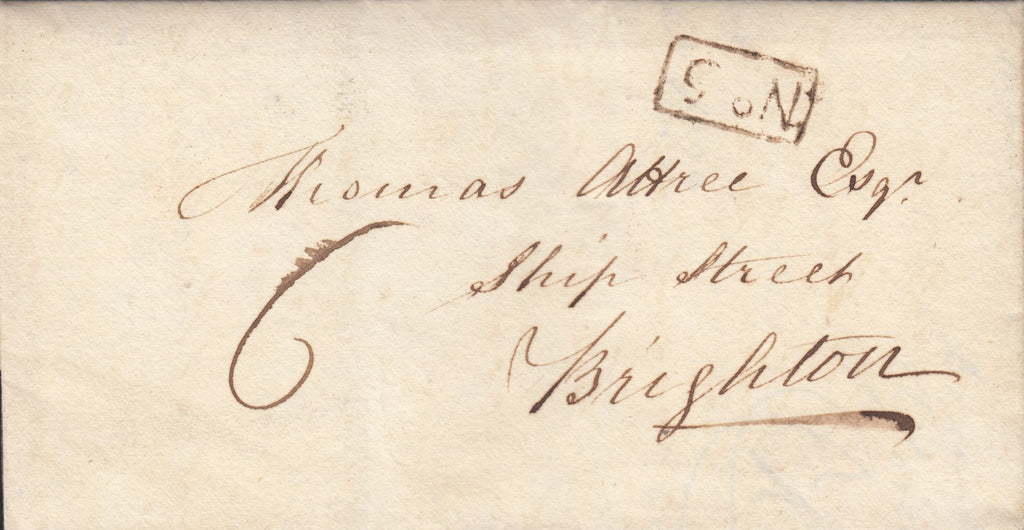 No 5
Thomas Attree Esqr.
6
Ship Street
Brighton